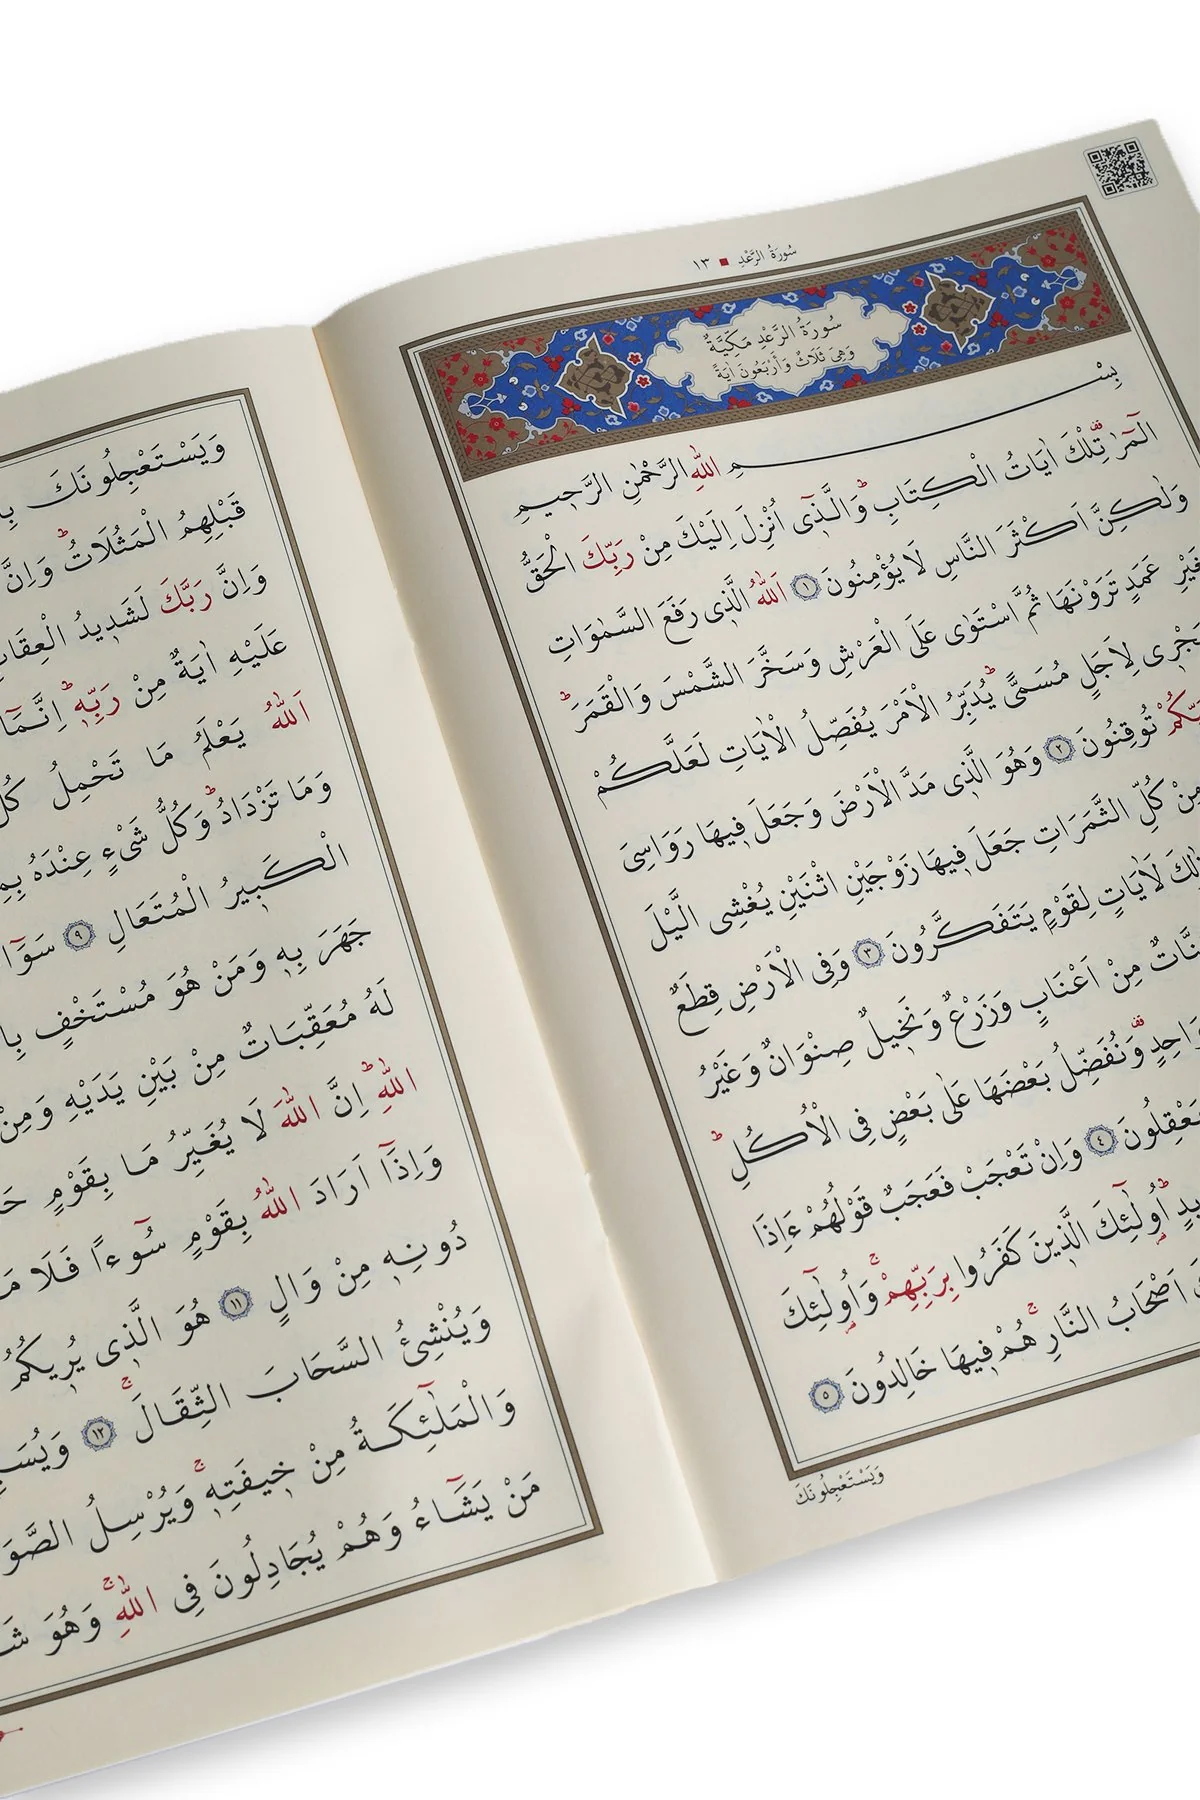 سُورَةُ الرَّعْدِ ١٣
سُورَةُ الرَّعْدِ مَكِّيَّةٌ
وَهِيَ ثَلَاثٌ وَأَرْبَعُونَ اٰيَةً
بِسْمِ اللّٰهِ الرَّحْمٰنِ الرَّحِيمِ
الٓمٓرٰ تِلْكَ اٰيَاتُ الْكِتَابِۜ وَالَّذٖٓى اُنْزِلَ اِلَيْكَ مِنْ رَبِّكَ الْحَقُّ
وَلٰكِنَّ اَكْثَرَ النَّاسِ لَا يُؤْمِنُونَ ١ اَللّٰهُ الَّذٖى رَفَعَ السَّمٰوَاتِ
غَيْرِ عَمَدٍ تَرَوْنَهَا ثُمَّ اسْتَوٰى عَلَى الْعَرْشِ وَسَخَّرَ الشَّمْسَ وَالْقَمَرَۜ
يَجْرٖى لِاَجَلٍ مُسَمًّىۜ يُدَبِّرُ الْاَمْرَ يُفَصِّلُ الْاٰيَاتِ لَعَلَّكُمْ
تُوقِنُونَ ٢ وَهُوَ الَّذٖى مَدَّ الْاَرْضَ وَجَعَلَ فٖيهَا رَوَاسِىَ
مِنْ كُلِّ الثَّمَرَاتِ جَعَلَ فٖيهَا زَوْجَيْنِ اثْنَيْنِ يُغْشِى الَّيْلَ
لَاٰيَاتٍ لِقَوْمٍ يَتَفَكَّرُونَ ٣ وَفِى الْاَرْضِ قِطَعٌ
مِنْ اَعْنَابٍ وَزَرْعٌ وَنَخٖيلٌ صِنْوَانٌ وَغَيْرُ
وَاحِدٍ وَنُفَضِّلُ بَعْضَهَا عَلٰى بَعْضٍ فِى الْاُكُلِۜ
يَعْقِلُونَ ٤ وَاِنْ تَعْجَبْ فَعَجَبٌ قَوْلُهُمْ ءَاِذَا
اُو۬لٰٓئِكَ الَّذٖينَ كَفَرُوا بِرَبِّهِمْۚ وَاُو۬لٰٓئِكَ
اَصْحَابُ النَّارِۚ هُمْ فٖيهَا خَالِدُونَ ٥
وَيَسْتَعْجِلُونَكَ
وَيَسْتَعْجِلُونَكَ
قَبْلِهِمُ الْمَثُلَاتُۜ وَاِنَّ
وَاِنَّ رَبَّكَ لَشَدٖيدُ الْعِقَابِ
عَلَيْهِ اٰيَةٌ مِنْ رَبِّهٖۜ اِنَّمَٓا
اَللّٰهُ يَعْلَمُ مَا تَحْمِلُ كُلُّ
وَمَا تَزْدَادُۜ وَكُلُّ شَىْءٍ عِنْدَهُ
الْكَبٖيرُ الْمُتَعَالِ ٩ سَوَٓاءٌ
جَهَرَ بِهٖ وَمَنْ هُوَ مُسْتَخْفٍ
لَهُ مُعَقِّبَاتٌ مِنْ بَيْنِ يَدَيْهِ وَمِنْ
اللّٰهِۜ اِنَّ اللّٰهَ لَا يُغَيِّرُ مَا بِقَوْمٍ
وَاِذَٓا اَرَادَ اللّٰهُ بِقَوْمٍ سُٓوءًا فَلَا
دُونِهٖ مِنْ وَالٍ ١١ هُوَ الَّذٖى يُرٖيكُمُ
وَيُنْشِئُ السَّحَابَ الثِّقَالَۚ ١٢
وَالْمَلٰٓئِكَةُ مِنْ خٖيفَتِهٖۚ وَيُرْسِلُ
مَنْ يَشَٓاءُ وَهُمْ يُجَادِلُونَ فِى اللّٰهِۚ وَهُوَ